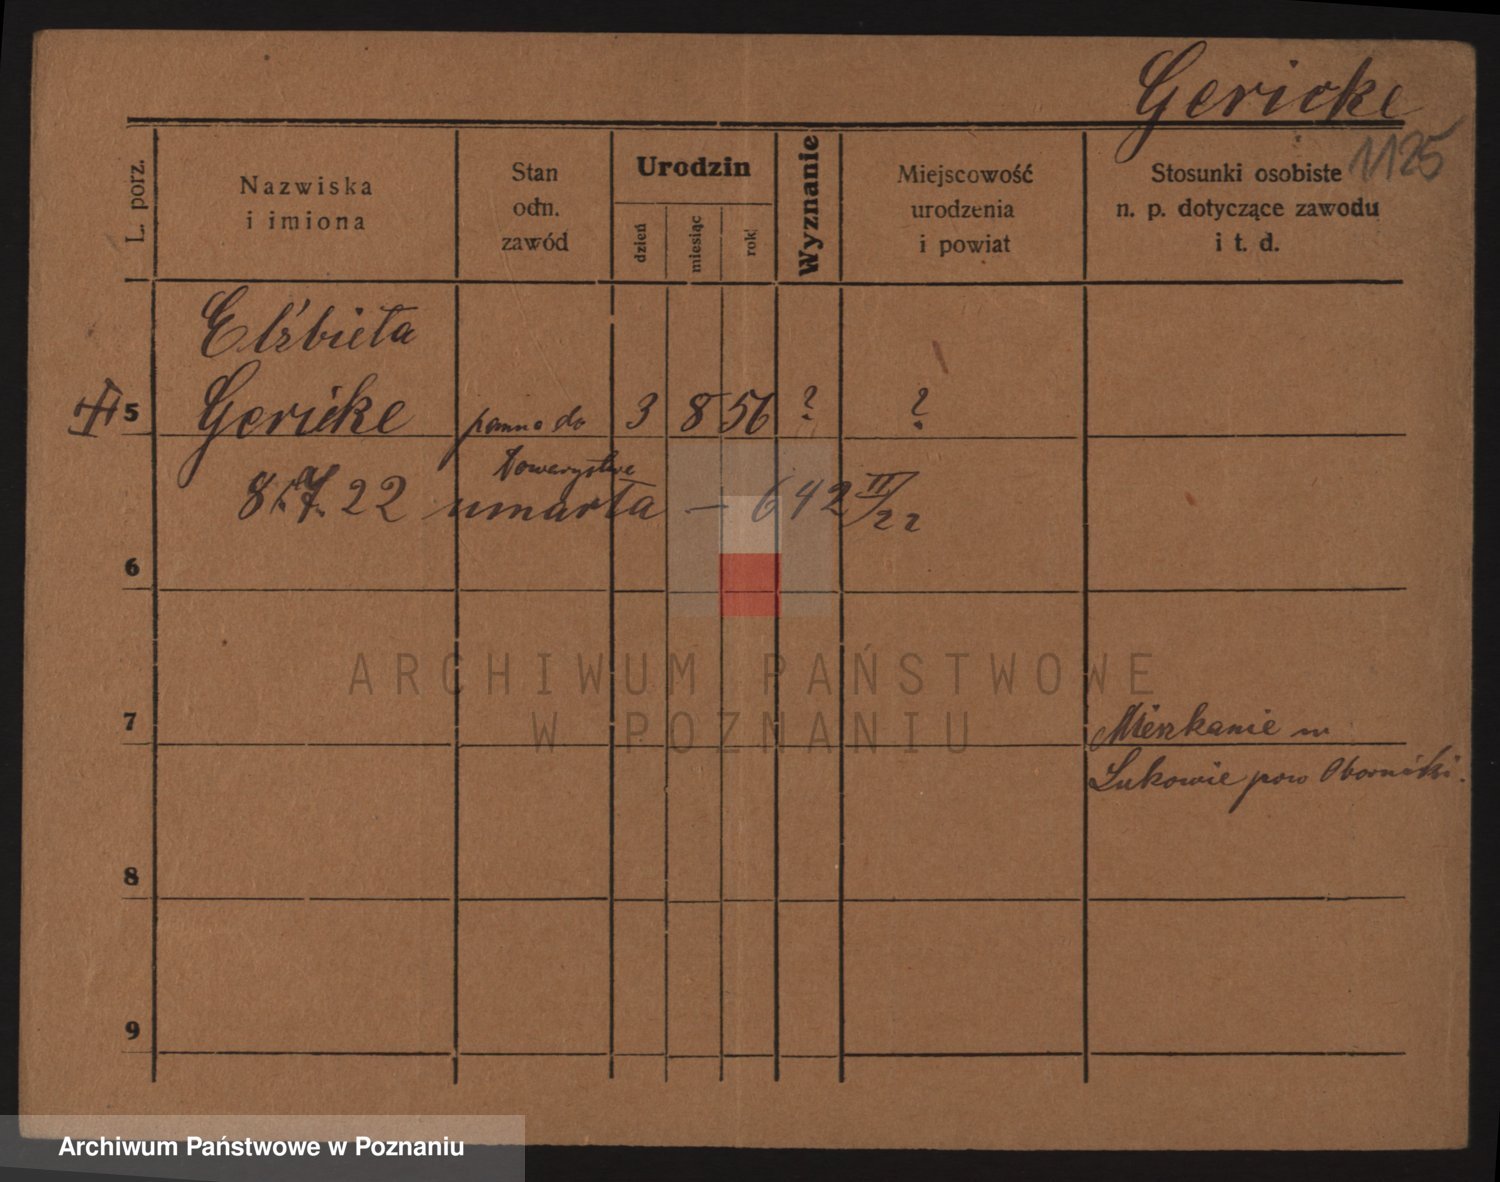 Gericke
1125
L. porz.
Nazwiska
i imiona
Stan
odn.
zawód
Urodzin
dzień
miesiąc
rok
Wyznanie
Miejscowość
urodzenia
i powiat
Stosunki osobiste
n. p. dotyczące zawodu
i t. d.
Elżbieta
5 Gericke panna do 3 8 56 ? ?
towarzystwa
8. 7. 22 umarła — 642 II/22
6
7 Mieszkanie w
Lukowie pow Obornicki.
8
9
ARCHIWUM PAŃSTWOWE
W POZNANIU
Archiwum Państwowe w Poznaniu